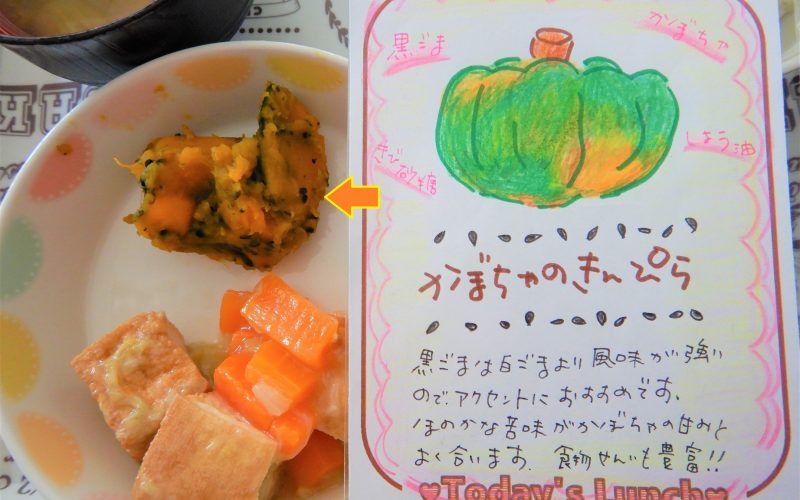 黒ごま
かぼちゃ
きび砂糖
しょう油
かぼちゃのきんぴら
黒ごまは白ごまより風味が強い
ので、アクセントにおすすめです。
ほのかな苦味がかぼちゃの甘みと
よく合います。食物せんいも豊富!!
♥Today's Lunch♥